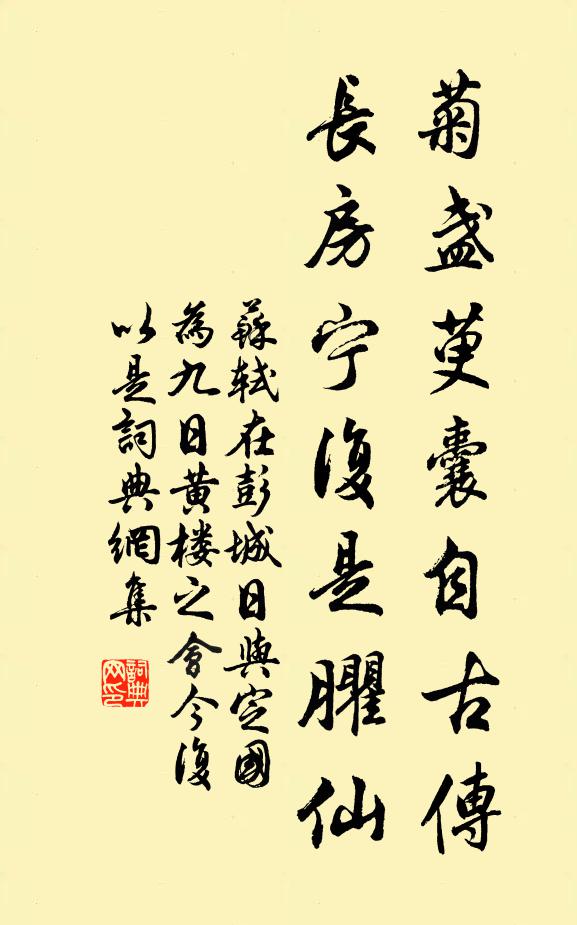 菊盏萸囊自古傳
長房宁復是臞仙
蘇軾在彭城日與定國
為九日黃楼之會今復
以是詞典網集
詞典网印